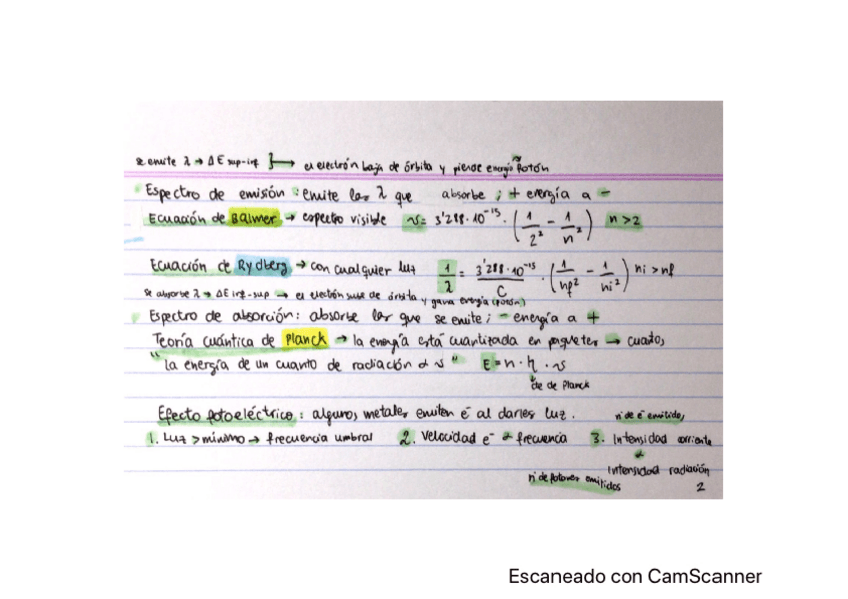 se emite λ → ΔE sup-inf } → el electrón baja de órbita y pierde energía fotón
Espectro de emisión : emite las λ que absorbe ; + energía a -
Ecuación de Balmer → espectro visible ν = 3'288·10⁻¹⁵ · (1/2² - 1/n²) n > 2
Ecuación de Rydberg → con cualquier luz 1/λ = 3'288·10⁻¹⁵/C · (1/nf² - 1/ni²) ni > nf
se absorbe λ → ΔE inf-sup → el electrón sube de órbita y gana energía (fotón)
Espectro de absorción: absorbe las que se emite ; - energía a +
Teoría cuántica de Planck → la energía está cuantizada en paquetes → cuatos,
"la energía de un cuanto de radiación α ν" E = n · h · ν
cte de Planck
Efecto fotoeléctrico : algunos metales emiten e⁻ al darles luz.
nº de e⁻ emitidos
1. Luz > mínimo → frecuencia umbral 2. Velocidad e⁻ α frecuencia 3. Intensidad corriente
α
Intensidad radiación
nº de fotones emitidos
2
Escaneado con CamScanner